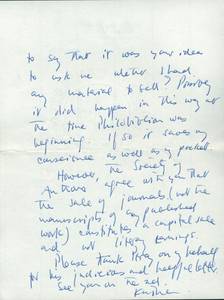 to say that it was your idea
to ask me whether I had
any material to sell?
it did happen in this way at
the time Philobiblon was
beginning. If so it saves my
conscience as well as my pocket.
However, the Society of
Authors agree with you that
the sale of journals (not the
manuscripts of my published
work) constitutes a capital sale
and not literary earnings.
Please thank on my behalf
for his judicious and helpful letter.
See you on the 2nd.